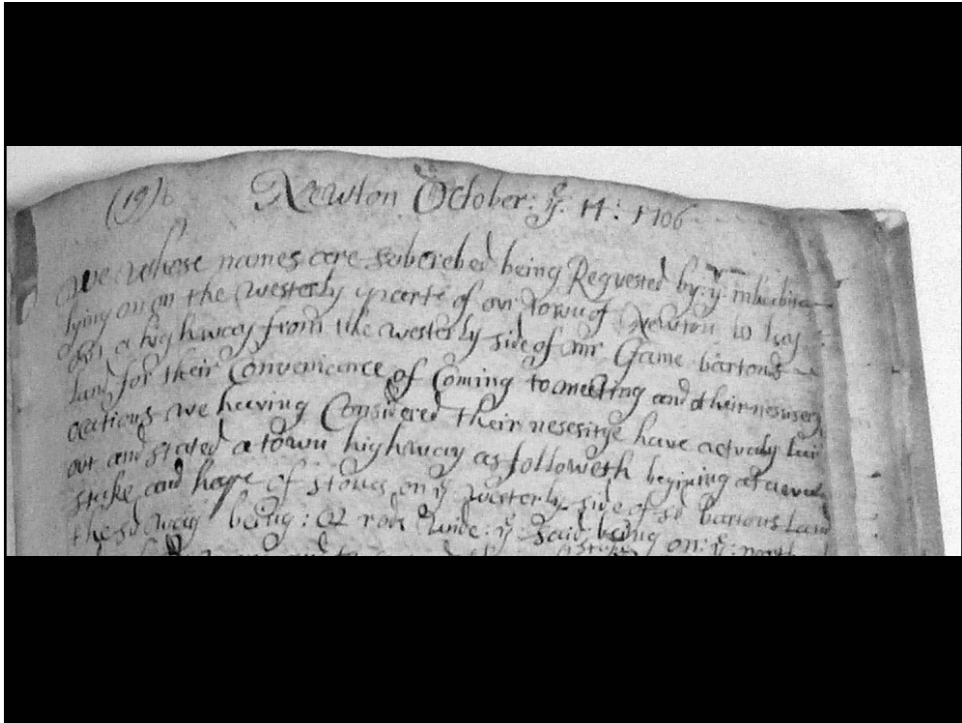 (19)
Newton October: ye: 11: 1706
We whose names are subscrebed being Requested by: ye inhabita
lying on the westerly parte of our town of Newton to lay
out a highway from the westerly side of mr Game bartons
land for their Conveniance of Coming to meeting and other nesisery
ocations we haeving Considered their nesesitye have actualy laid
out and stated a town highway as followeth begining at
stake and heape of stones on ye westerly side of sd bartons land
the sd way being: rods wide: ye said being on: ye: north